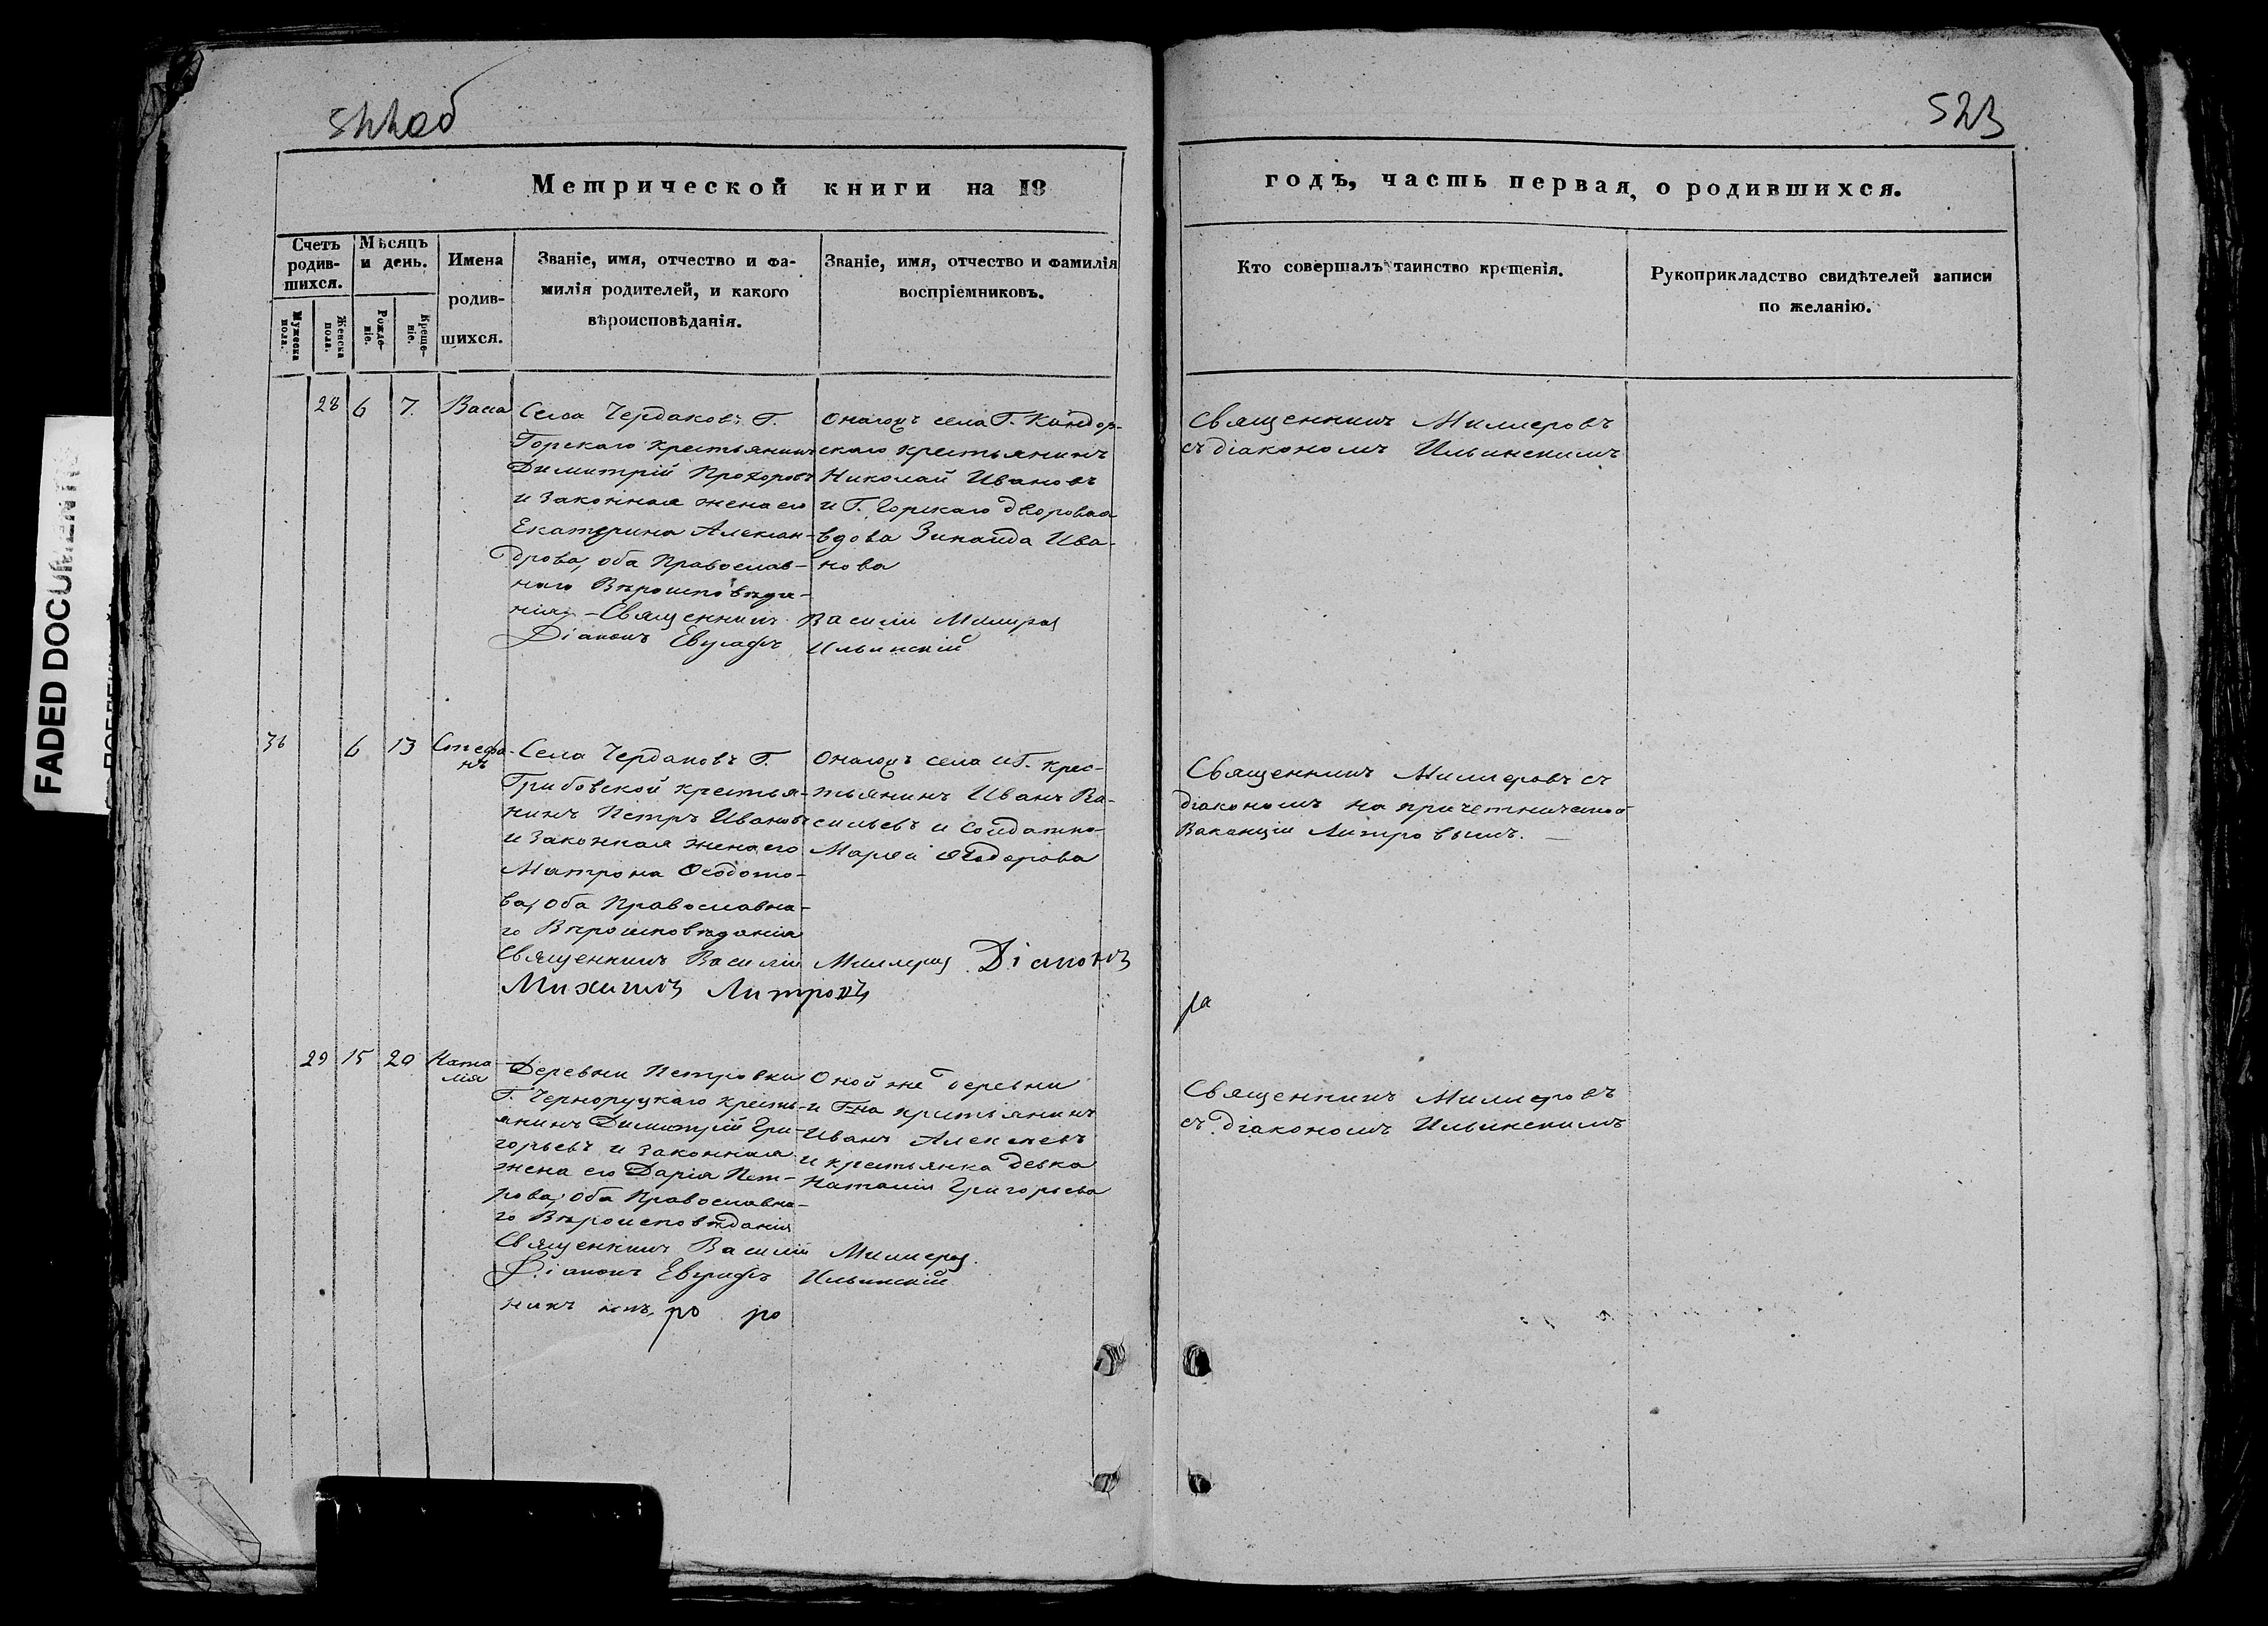 523
Метрической книги на 18
годъ, часть первая, о родившихся.
Счетъ родив-
шихся.
Мѣсяцъ
и день.
Имена
родив-
шихся.
Званіе, имя, отчество и фа-
милія родителей, и какого
вѣроисповѣданія.
Званіе, имя, отчество и фамилія
воспріемниковъ.
Кто совершалъ таинство крещенія.
Рукоприкладство свидѣтелей записи
по желанію.
Мужеска
пола.
Женска
пола.
Рожде-
ніе.
Креще-
ніе.
28 6 7. Васса
Села Чердаковъ Г.
Горскаго крестьянинъ
Димитрій Прохоровъ
и законная жена его
Екатерина Алексан-
дрова, оба Православ-
наго Вѣроисповѣда-
нія – Священникъ Василій Миллеровъ
Діаконъ Евграфъ Ильинскій
Онагожъ села Г.
скаго крестьянинъ
Николай Ивановъ
и Г. Горскаго дворовая
вдова Зинаида Ива-
нова
Священникъ Миллеровъ
съ діакономъ Ильинскимъ
36 6 13 Стефа-
нъ
Села Чердаковъ Г.
Грибовской крестья-
нинъ Петръ Ивановъ
и законная жена его
Матрона Ѳеодото-
ва, оба Православна-
го Вѣроисповѣданія
Священникъ Василій Миллеровъ Діаконъ
Михаилъ
Онагожъ села и Г. крес-
тьянинъ Иванъ Ва-
сильевъ и солдатка
Марѳа Ѳеодорова
Священникъ Миллеровъ съ
діакономъ на причетнической
Ваканціи
ра
29 15 20 Ната
лія
Деревни Петровки
Г. Черноруцкаго кресть-
янинъ Димитрій Гри-
горьевъ и законная
жена его Дарія Пет-
рова, оба Православна-
го Вѣроисповѣданія
Священникъ Василій Миллеровъ.
Діаконъ Евграфъ Ильинскій
Оной же деревни
и Г-на крестьянинъ
Иванъ Алексѣевъ
и крестьянка девка
Наталія Григорьева
Священникъ Миллеровъ
съ діакономъ Ильинскимъ
никъ ро ро
FADED DOCUMENTS